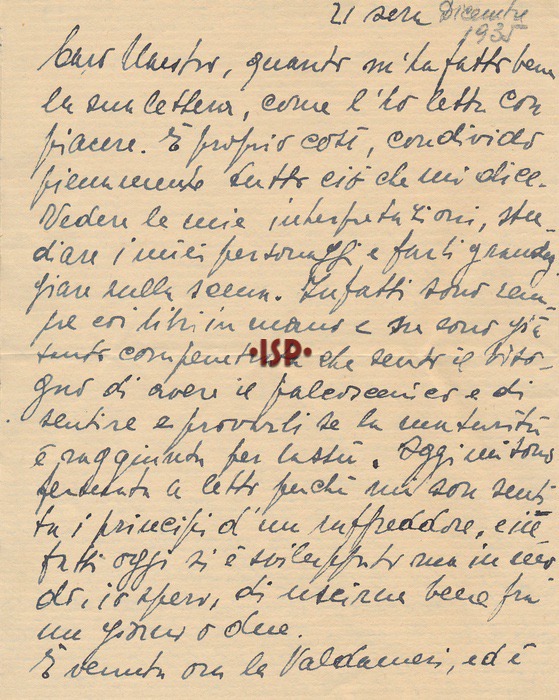 21 sera Dicembre
1935
Caro Maestro, quanto m'ha fatto bene
la sua lettera, come l'ho letta con
piacere. È proprio così, condivido
pienamente tutto ciò che mi dice.
Vedere le mie interpretazioni, stu-
diare i miei personaggi e farli grandeg
giare sulla scena. Infatti sono sem
pre coi libri in mano e ne sono già
tanto compenetrata che sento il biso-
gno di avere il palcoscenico e di
sentire e provarli se la maturità
è raggiunta per lassù. Oggi mi sono
fermata a letto perché mi son senti
ta i principi d'un raffreddore, e in
fatti oggi si è sviluppato ma in mo
do, io spero, di uscirne bene fra
un giorno o due.
È venuta ora la Valdameri, ed è
ISP